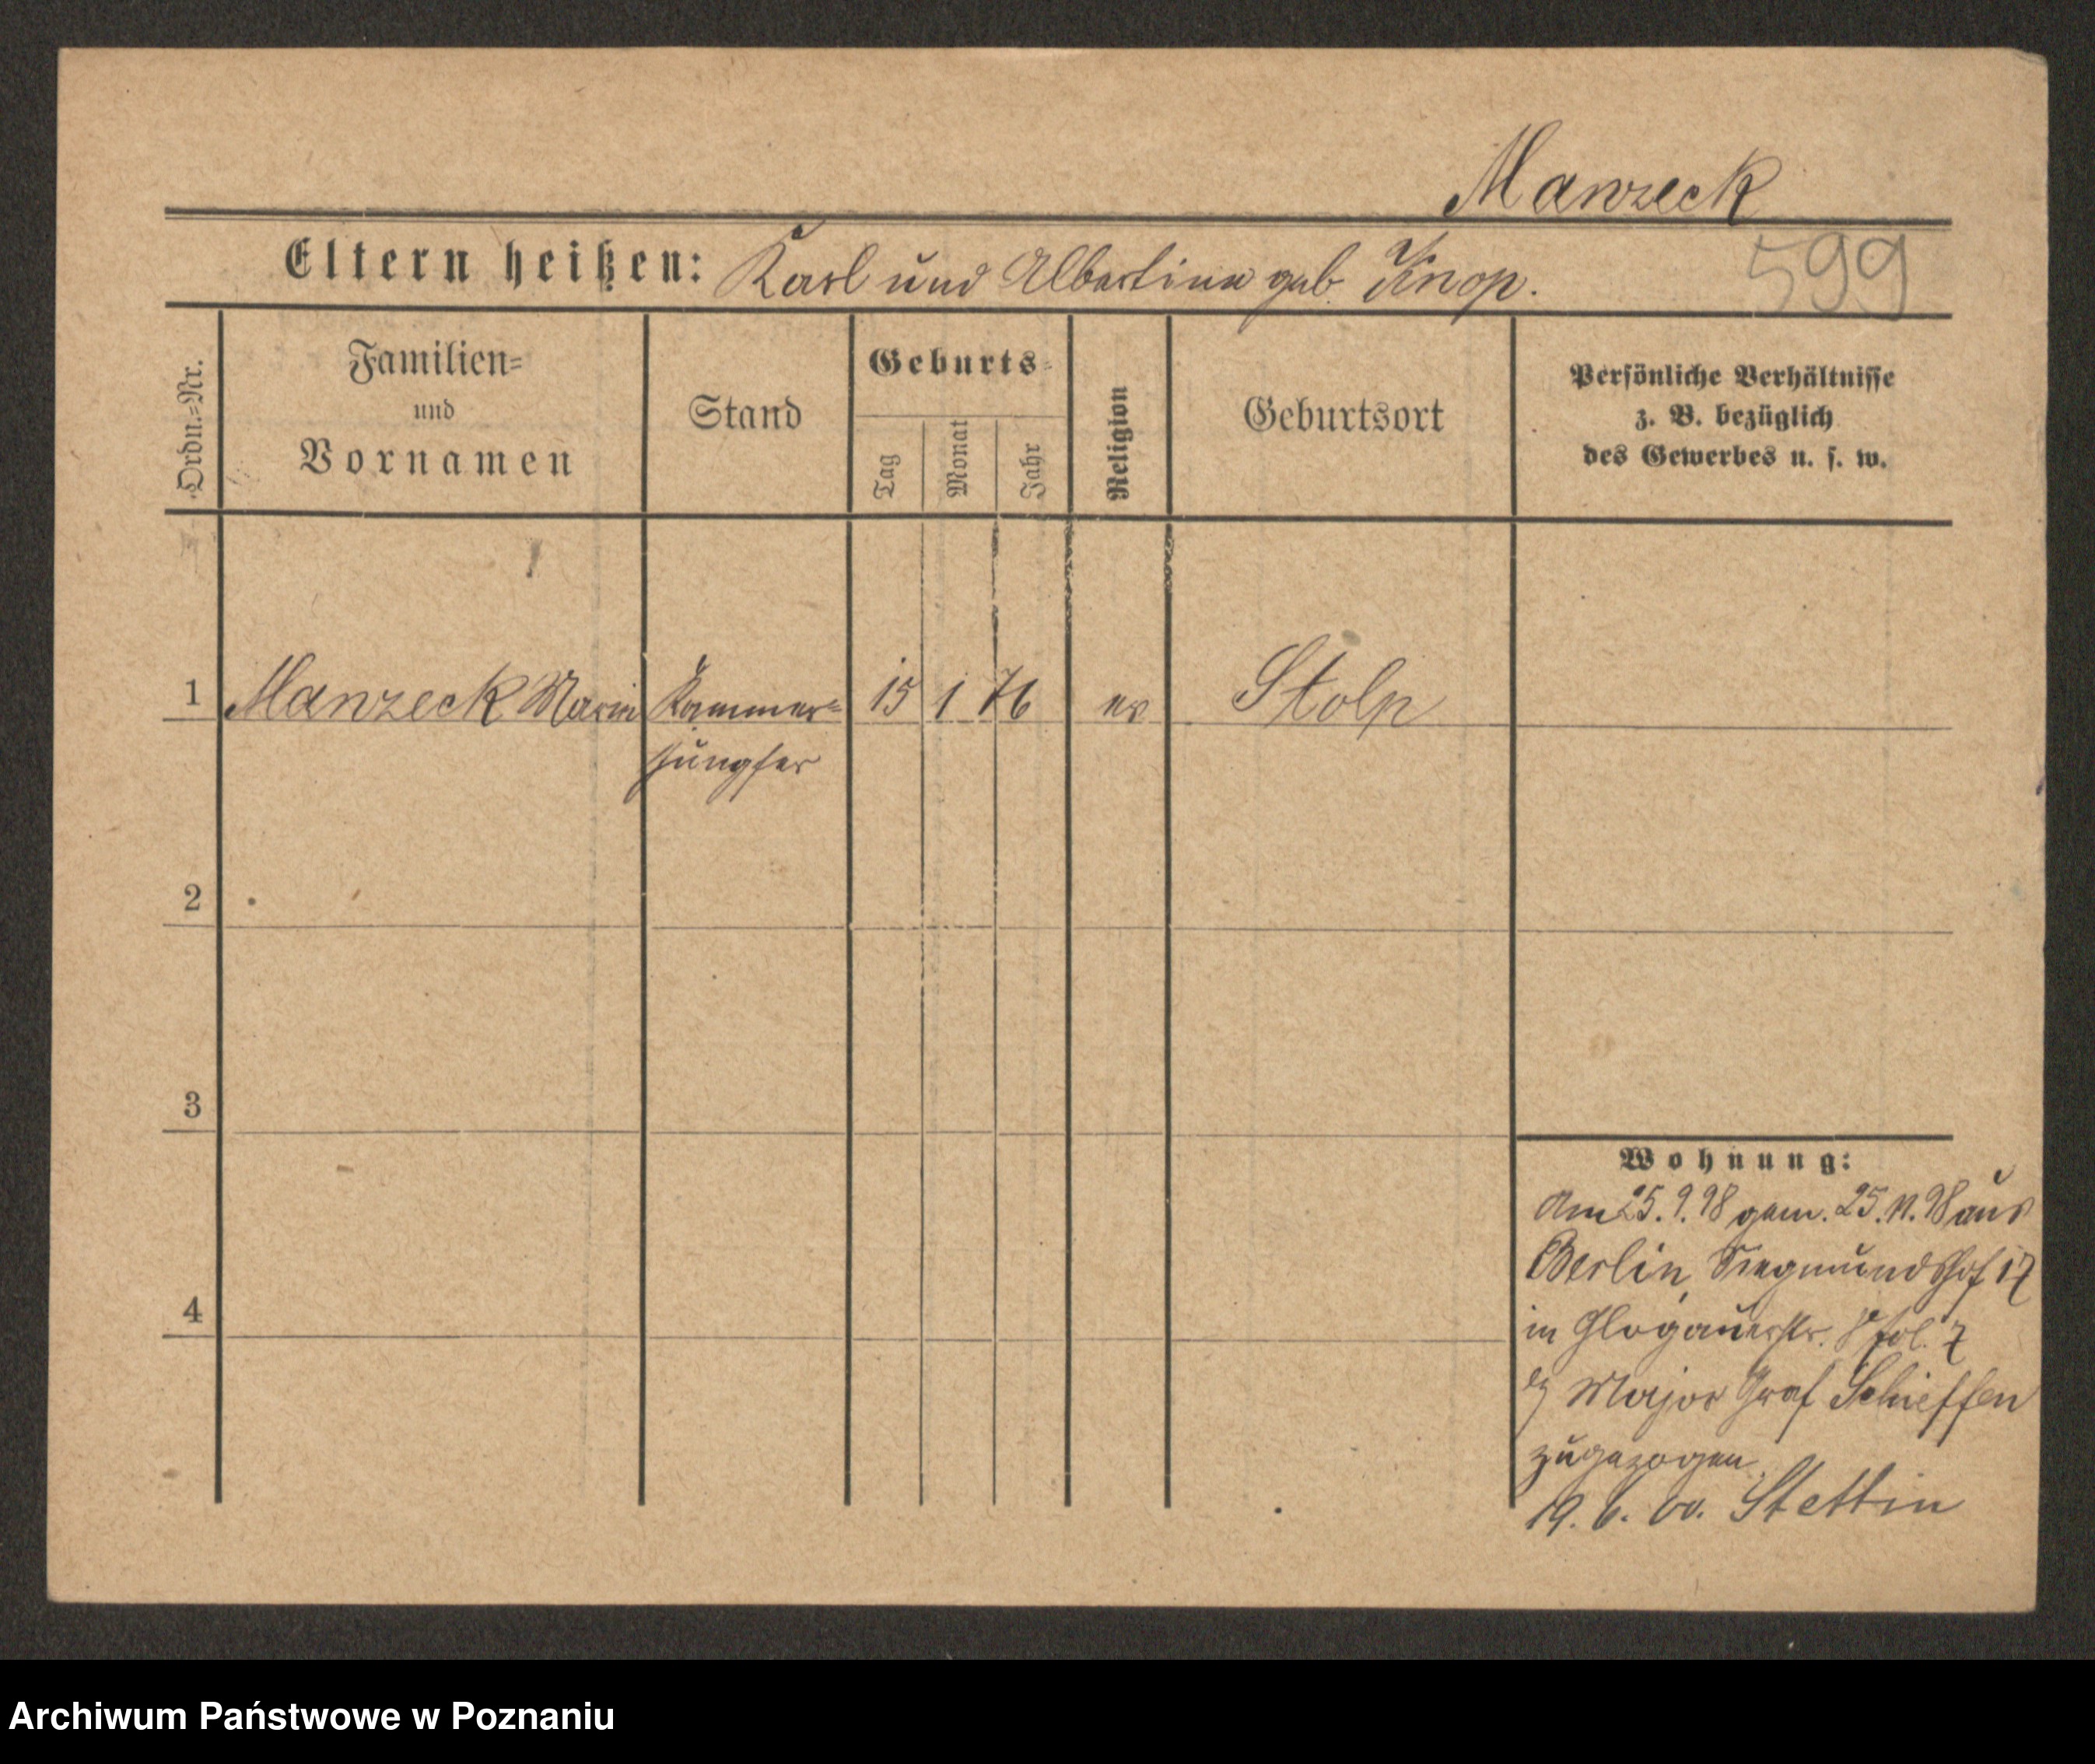 Manzeck
Eltern heißen: Karl und Albertine geb. Knop.
599
Ordn.=Nr.
Familien=
und
Vornamen
Stand
Geburts=
Tag
Monat
Jahr
Religion
Geburtsort
Persönliche Verhältnisse
z. B. bezüglich
des Gewerbes u. s. w.
1 Manzeck Marie Kammer= 15 1 76 ev Stolp
jungfer
2
3
4
Wohnung:
Am 25.9.98 gem. 25.11.98 aus
Berlin, Siegmundshof 17
in Glogauerstr. 7
Major Graf Schieffen
zugezogen.
19. 6. 00. Stettin
Archiwum Państwowe w Poznaniu